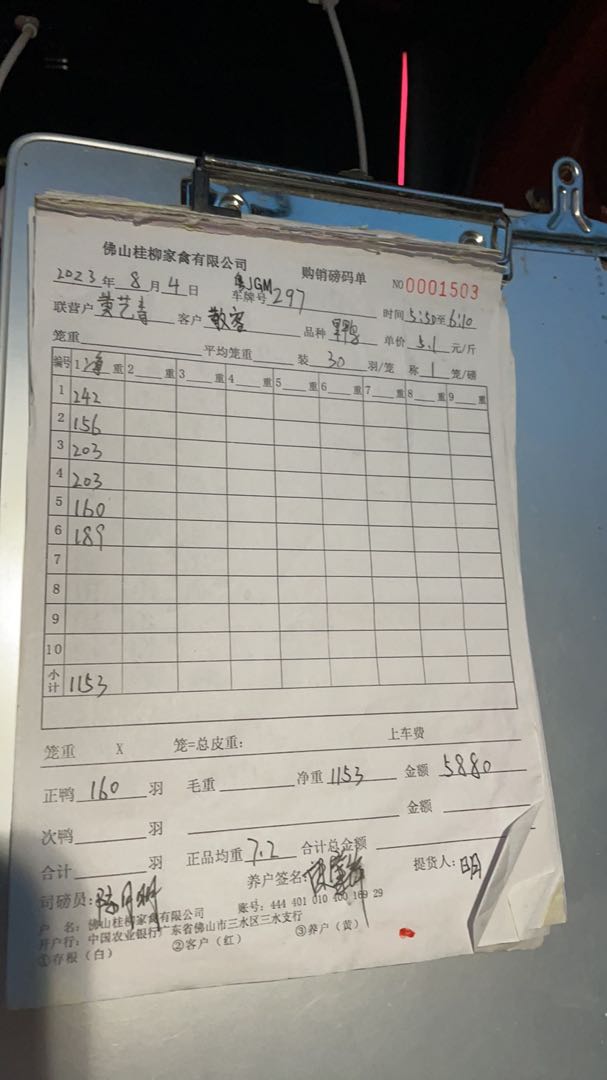 佛山桂柳家禽有限公司 购销磅码单 NO 0001503
2023年 8 月 4 日 车牌号 JGM 297 时间 5:50至6:10
联营户 黄艺青 客户 散客 品种 单价 5.1 元/斤
笼重 平均笼重 装 30 羽/笼 称 1 笼/磅
编号 1 净 重 2 重 3 重 4 重 5 重 6 重 7 重 8 重 9 重
1 242
2 156
3 203
4 203
5 160
6 189
7
8
9
10
小计 1153
笼重 X 笼=总皮重: 上车费
正鸭 160 羽 毛重 净重 1153 金额 5880
次鸭 羽 金额
合计 羽 正品均重 7.2 合计总金额
司磅员: 养户签名: 提货人: 明
户 名: 佛山桂柳家禽有限公司 账号: 444 401 010 400 169 29
开户行: 中国农业银行广东省佛山市三水区三水支行
①存根（白） ②客户（红） ③养户（黄）